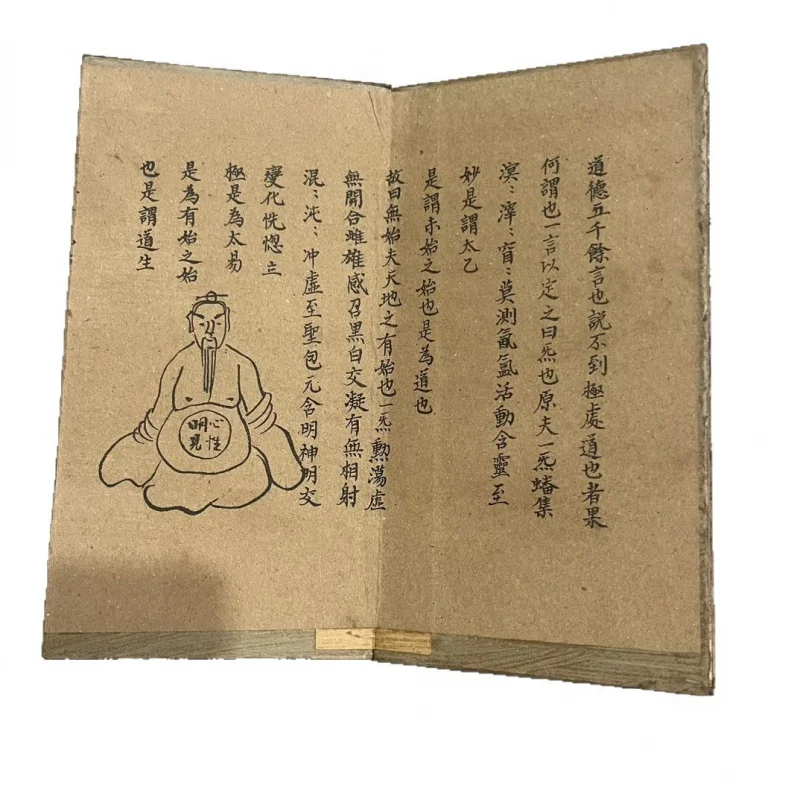 道德五千餘言也説不到極處道也者果
何謂也一言以定之曰炁也原夫一炁蟠集
溟：滓：窅：莫測氤氳活動含靈至
妙是謂太乙
是謂未始之始也是為道也
故曰無始夫天地之有始也一炁勲蕩虛
無開合雌雄感召黑白交凝有無相射
混：沌：冲虛至聖包元含明神明交
變化恍惚立
極是為太易
是為有始之始
也是謂道生
心性
明見